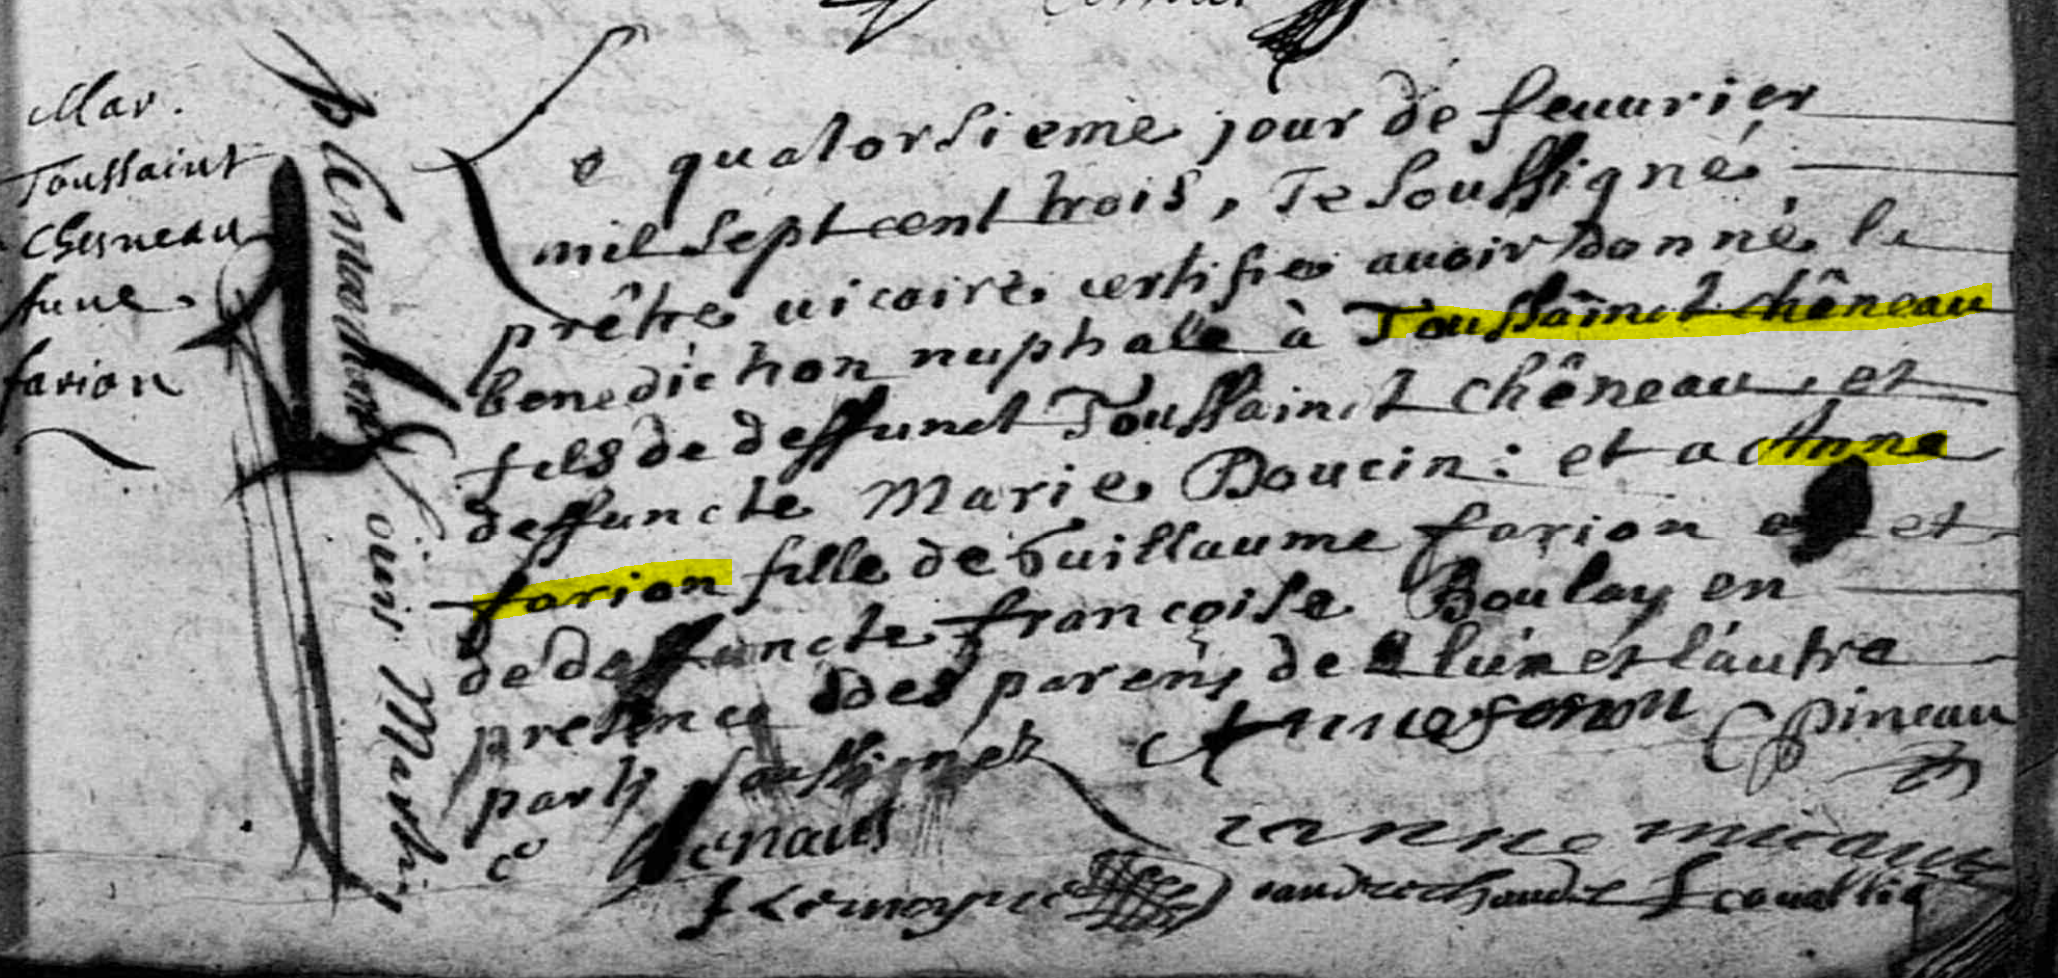 Mar.
Toussaint
Chesneau
farion
Le quatorsieme jour de feuurier
mil sept cent trois, Je soussigné
prêtre uicaire certifie auoir donné la
benediction nuptiale à Toussainct chêneau
fils de deffunct Toussainct chêneau et
deffuncte Marie Boucin : et a Anne
farion fille de Guillaume farion et
de deffuncte françoise Boulay en
presence des parens de l'un et l'autre
part soussignez
Anne farion
C Pineau
C Renaus
F Lemoyne
Louis Martin